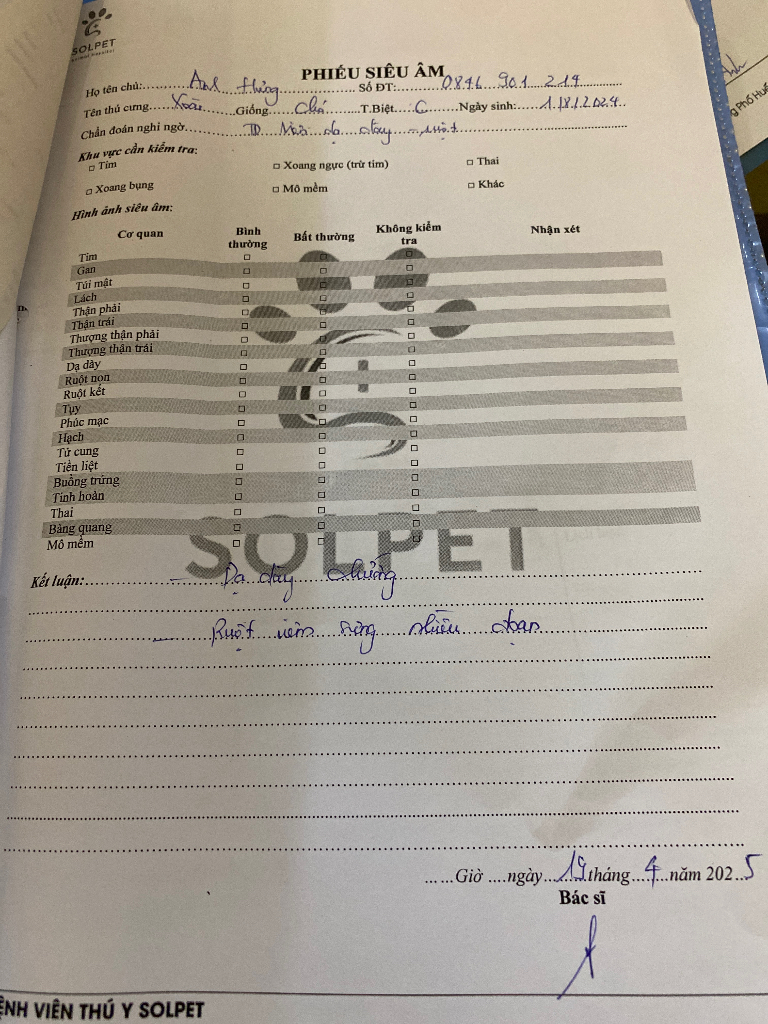 SOLPET
PHIẾU SIÊU ÂM
Họ tên chủ: Anh Hùng Số ĐT: 0846 901 219
Tên thú cưng Xoài Giống Chó T.Biệt C Ngày sinh: 1/8/2024
Chẩn đoán nghi ngờ TD dạ dày ruột
Khu vực cần kiểm tra:
□ Tim □ Xoang ngực (trừ tim) □ Thai
□ Xoang bụng □ Mô mềm □ Khác
Hình ảnh siêu âm:
Cơ quan Bình thường Bất thường Không kiểm tra Nhận xét
Tim □ □ □
Gan □ □ □
Túi mật □ □ □
Lách □ □ □
Thận phải □ □ □
Thận trái □ □ □
Thượng thận phải □ □ □
Thượng thận trái □ □ □
Dạ dày □ □ □
Ruột non □ □ □
Ruột kết □ □ □
Tụy □ □ □
Phúc mạc □ □ □
Hạch □ □ □
Tử cung □ □ □
Tiền liệt □ □ □
Buồng trứng □ □ □
Tinh hoàn □ □ □
Thai □ □ □
Bàng quang □ □ □
Mô mềm □ □ □
SOLPET
Kết luận: - Dạ dày chướng
- Ruột viêm sưng nhiều đoạn
......Giờ ....ngày 19 tháng 4 năm 2025
Bác sĩ
ỆNH VIỆN THÚ Y SOLPET